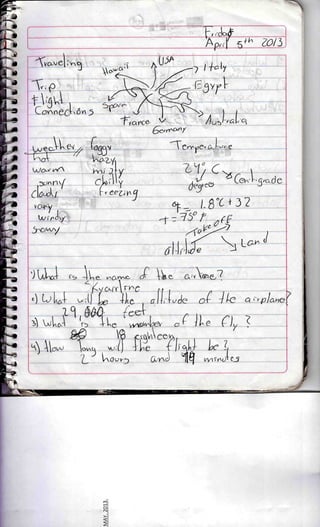 Friday
April 5th 2013
Traveling
Hawaii
USA
Italy
Trip
Egypt
Flight
Connections
Spain
France
Germany
Australia
weather foggy Temperature
hot hazy
warm misty 24° C Centigrade
sunny chilly degrees
cloudy freezing
rainy °F = 1.8°C + 32
windy = 75° F
snowy Take OFF
altitude Land
1) What is the name of the airline?
2) What will be the altitude of the airplane?
29,000 feet
3) What is the number of the fly?
18 eighteen
4) How long will the flight be?
2 hours and minutes
MAY. 2013.